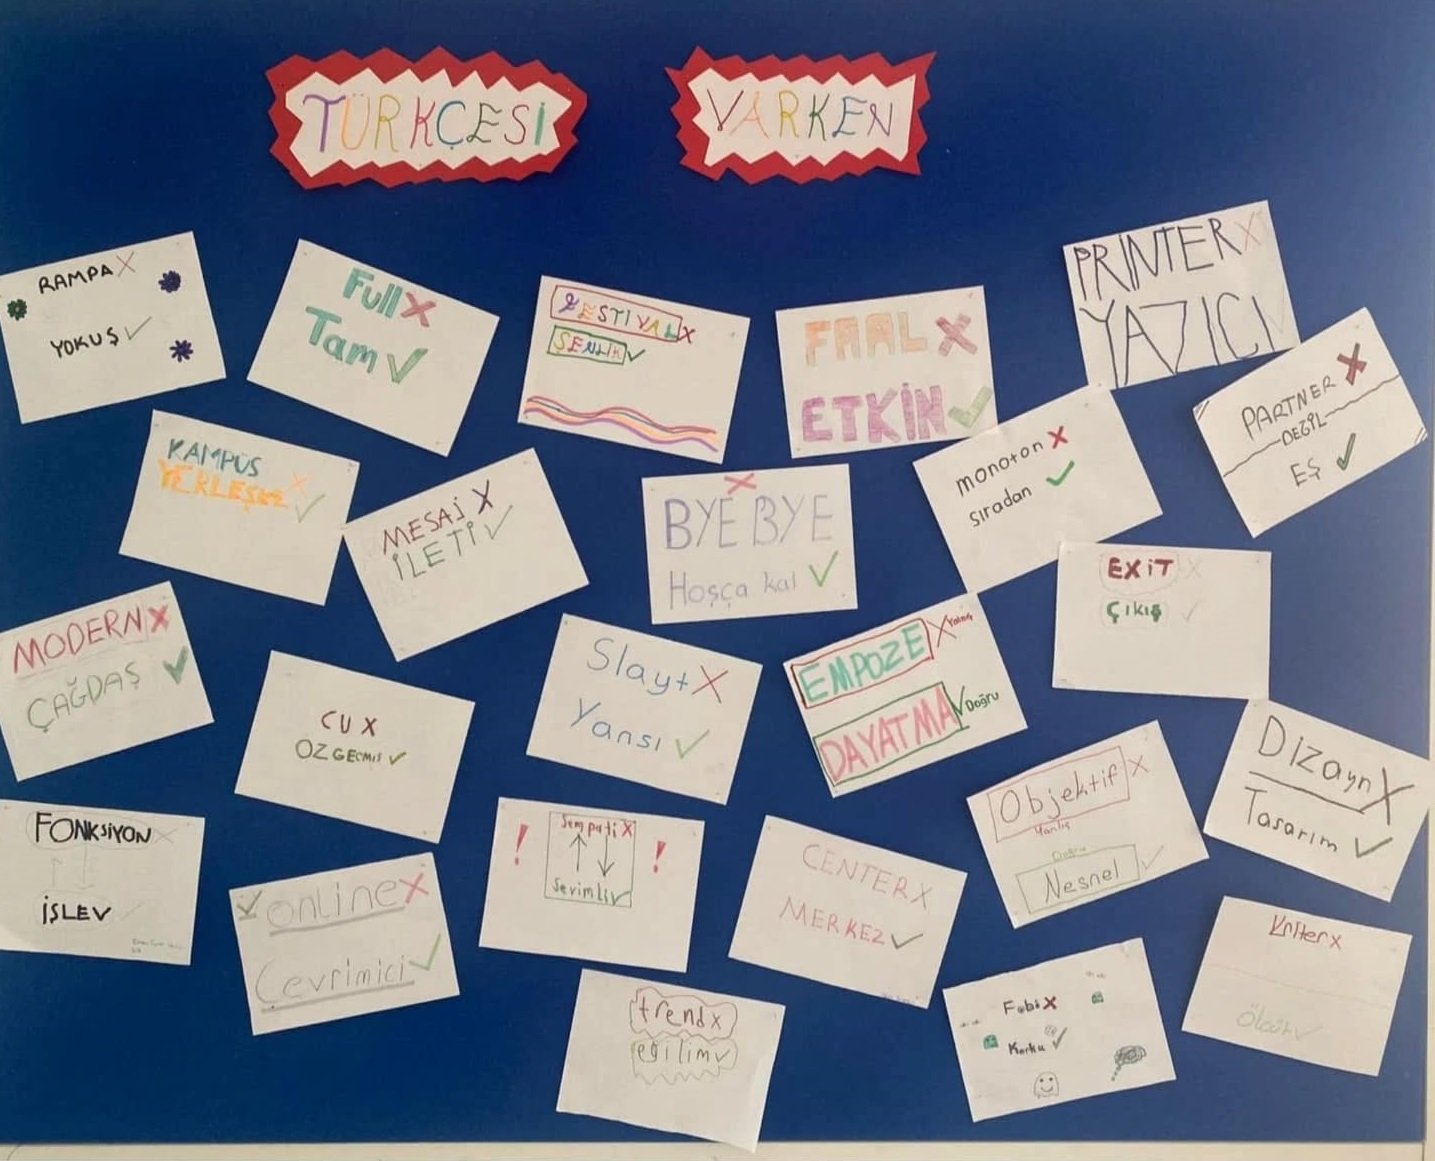 TÜRKÇESİ VARKEN
RAMPA X
YOKUŞ ✓
Full X
Tam ✓
FESTİVAL X
ŞENLİK ✓
FAAL X
ETKİN ✓
PRINTER X
YAZICI ✓
PARTNER X
DEĞİL
EŞ ✓
KAMPÜS X
YERLEŞKE ✓
MESAJ X
İLETİ ✓
X
BYE BYE
Hoşça kal ✓
monoton X
sıradan ✓
EXİT X
Çıkış ✓
MODERN X
ÇAĞDAŞ ✓
CV X
ÖZGEÇMİŞ ✓
Slayt X
Yansı ✓
EMPOZE X Yanlış
DAYATMA ✓ Doğru
Objektif X
Yanlış
Doğru
Nesnel ✓
Dizayn X
Tasarım ✓
FONKSİYON X
İŞLEV ✓
online X
Çevrimiçi ✓
! Sempati X !
Sevimli ✓
CENTER X
MERKEZ ✓
Kriter X
Ölçüt ✓
trend x
eğilim ✓
Fobi X
Korku ✓